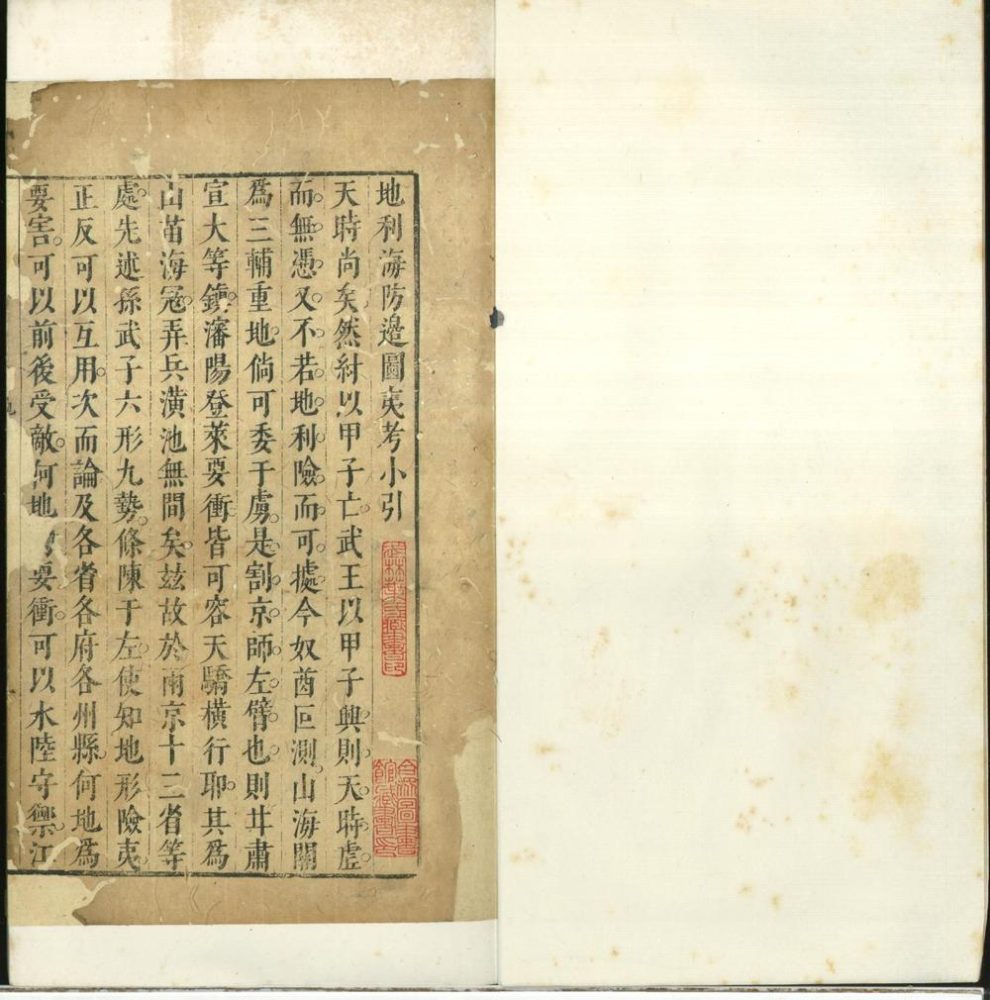 地利海防邊圖夷考小引
天時尚矣然紂以甲子亡武王以甲子興則天時虛
而無憑又不若地利險而可據今奴酋叵測山海關
爲三輔重地倘可委于虜是割京師左臂也則甘肅
宣大等鎮瀋陽登萊要衝皆可容天驕橫行耶其爲
山茁海冦弄兵潢池無間矣玆故於南京十三省等
處先述孫武子六形九勢條陳于左使知地形險夷
正反可以互用次而論及各省各府各州縣何地爲
要害可以前後受敵何地 要衝可以水陸守禦江